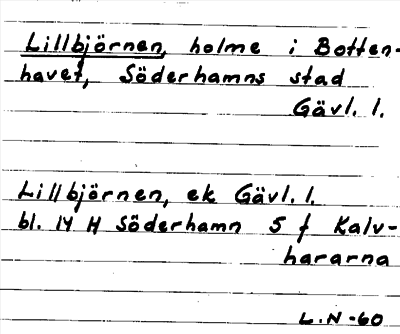 Lillbjörnen, holme i Botten-
havet, Söderhamns stad
Gävl. l.
Lillbjörnen, ek Gävl. l.
bl. 14 H Söderhamn 5 f Kalv-
hararna
L.N-60